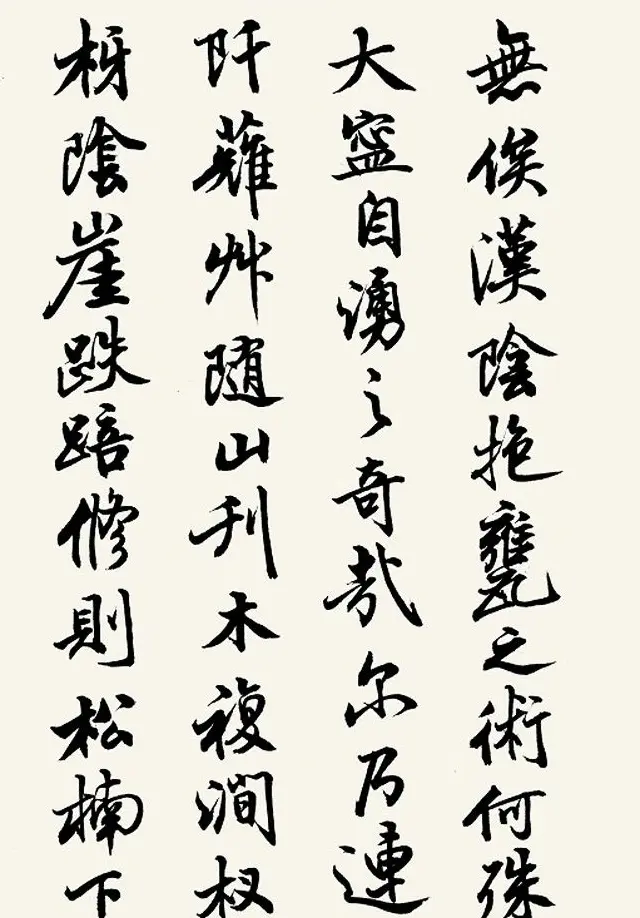 無俟漢陰抱甕之術何殊
大寍自湧之奇哉尔乃連
阡薙艸随山刊木複澗杈
枒陰崖跌踣修則松楠下